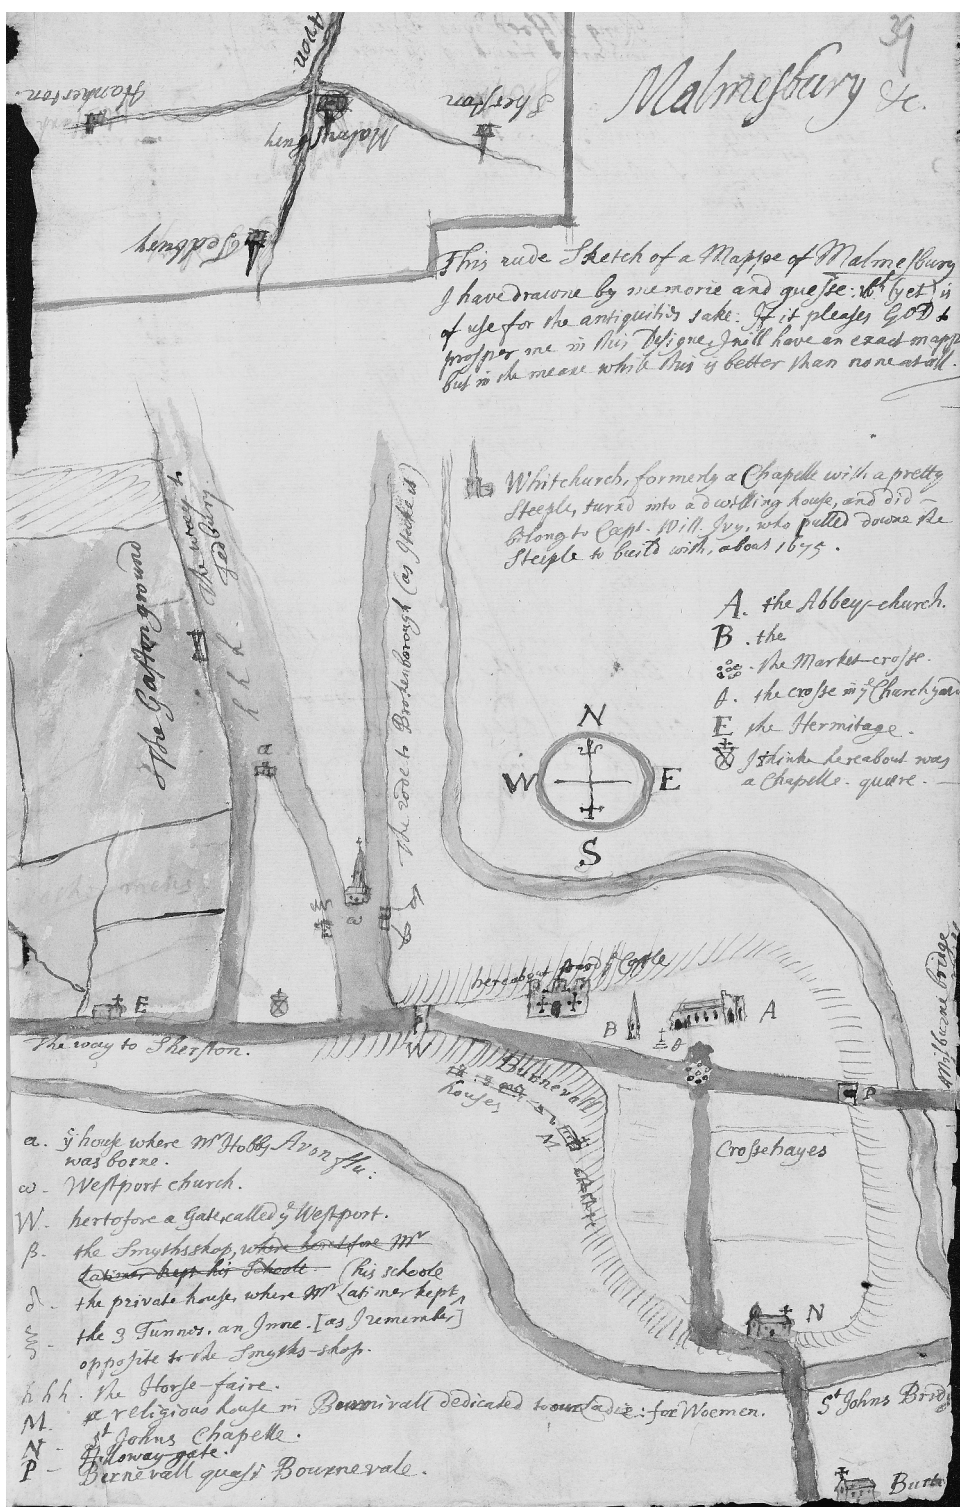 39
Malmesbury &c.
Avon
Hankerton.
Malmesbury
Sherston
Tedbury
This rude Sketch of a Mappe of Malmesbury
I have drawne by memorie and guesse: wch (yet) is
of use for the antiquities sake. If it pleases GOD to
prosper me in this Designe, I will have an exact mappe
but in the meane while this is better than none at all.
Whitchurch, formerly a Chapelle with a pretty
Steeple, turnd into a dwelling house, and did
belong to Capt. Will. Ivy, who pulled downe the
Steeple to build with, about 1675.
A. the Abbey-church.
B. the
the Market-crosse.
θ. the crosse in ye Churchyard
E the Hermitage.
I thinke hereabout was
a Chapelle. quære.
The way to
Tedbury.
The Gastonground
h h h
The rode to Brokenborough (as I take it)
a
ω
β
N
W E
S
hereabout stood ye Castle
B
A
θ
E
The way to Sherston.
W
Burnevall
houses
M
P
Milburne bridge
Crossehayes
N
St Johns Bridg
Burt
Avon flu:
a. ye house where Mr Hobbs
was borne.
ω. Westport church.
W. hertofore a Gate, called ye Westport.
β. the Smyths shop, where heretofore Mr
Latimer kept his Schoole. (his schoole
δ. the private house, where Mr Latimer kept
ξ. the 3 Tunnes, an Inne. [as I remember]
opposite to the Smyths-shop.
h h h. the Horse-faire.
M. a religious house in Burnivall dedicated to our Ladie: for Woemen.
N - St Johns Chapelle.
P - Holloway-gate.
Bernevall quasi Bournevale.